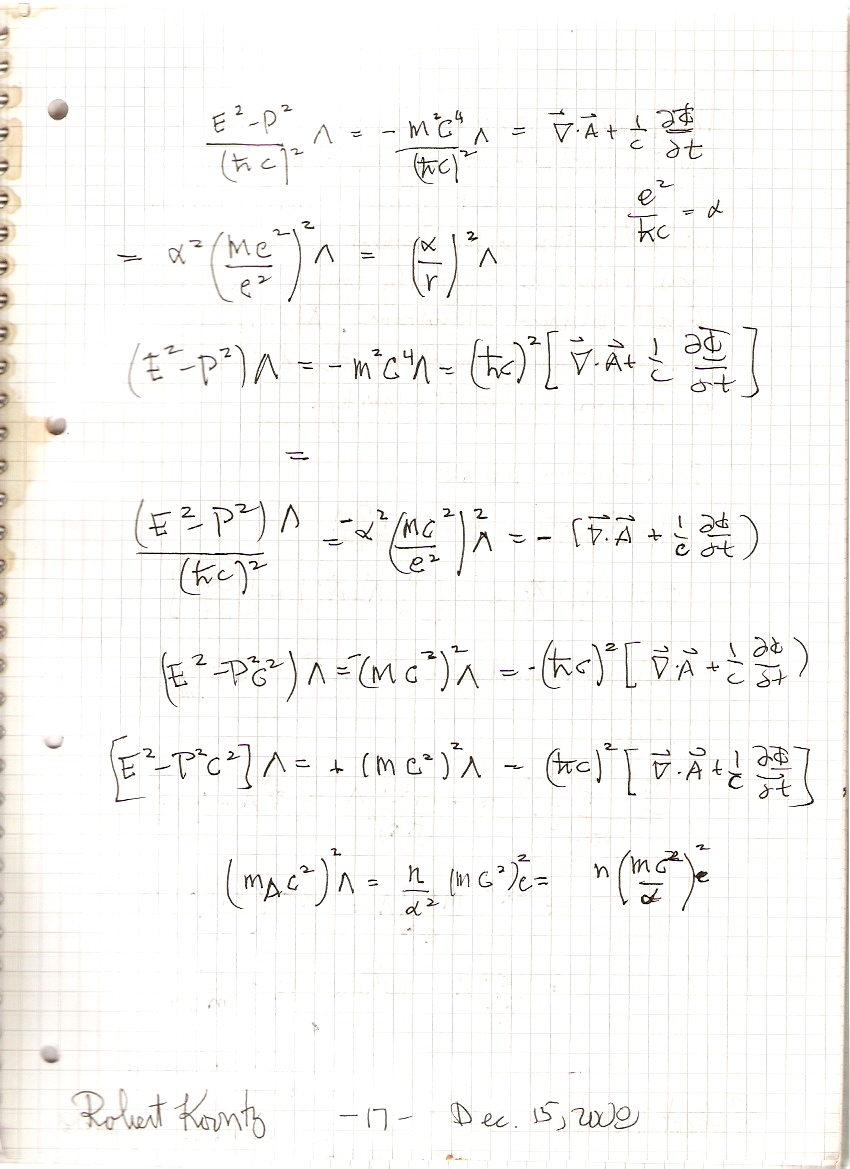 E²-P²/(ħc)² Λ = - m²c⁴/(ħc)² Λ = ∇⃗·A⃗ + 1/c ∂Φ/∂t
e²/ħc = α
= α² (mc²/e²)² Λ = (α/r)² Λ
(E²-P²) Λ = - m²c⁴Λ = (ħc)² [∇⃗·A⃗ + 1/c ∂Φ/∂t]
=
(E²-P²) Λ/(ħc)² = -α² (mc²/e²)² Λ = - (∇⃗·A⃗ + 1/c ∂Φ/∂t)
(E²-P²c²) Λ = -(mc²)² Λ = -(ħc)² [∇⃗·A⃗ + 1/c ∂Φ/∂t)
[E²-P²c²] Λ = + (mc²)² Λ - (ħc)² [∇⃗·A⃗ + 1/c ∂Φ/∂t]
(m_Λ c²)² Λ = n/α² (mc²)²e = n (mc²/α)² e
Robert Koontz -17- Dec. 15, 2008